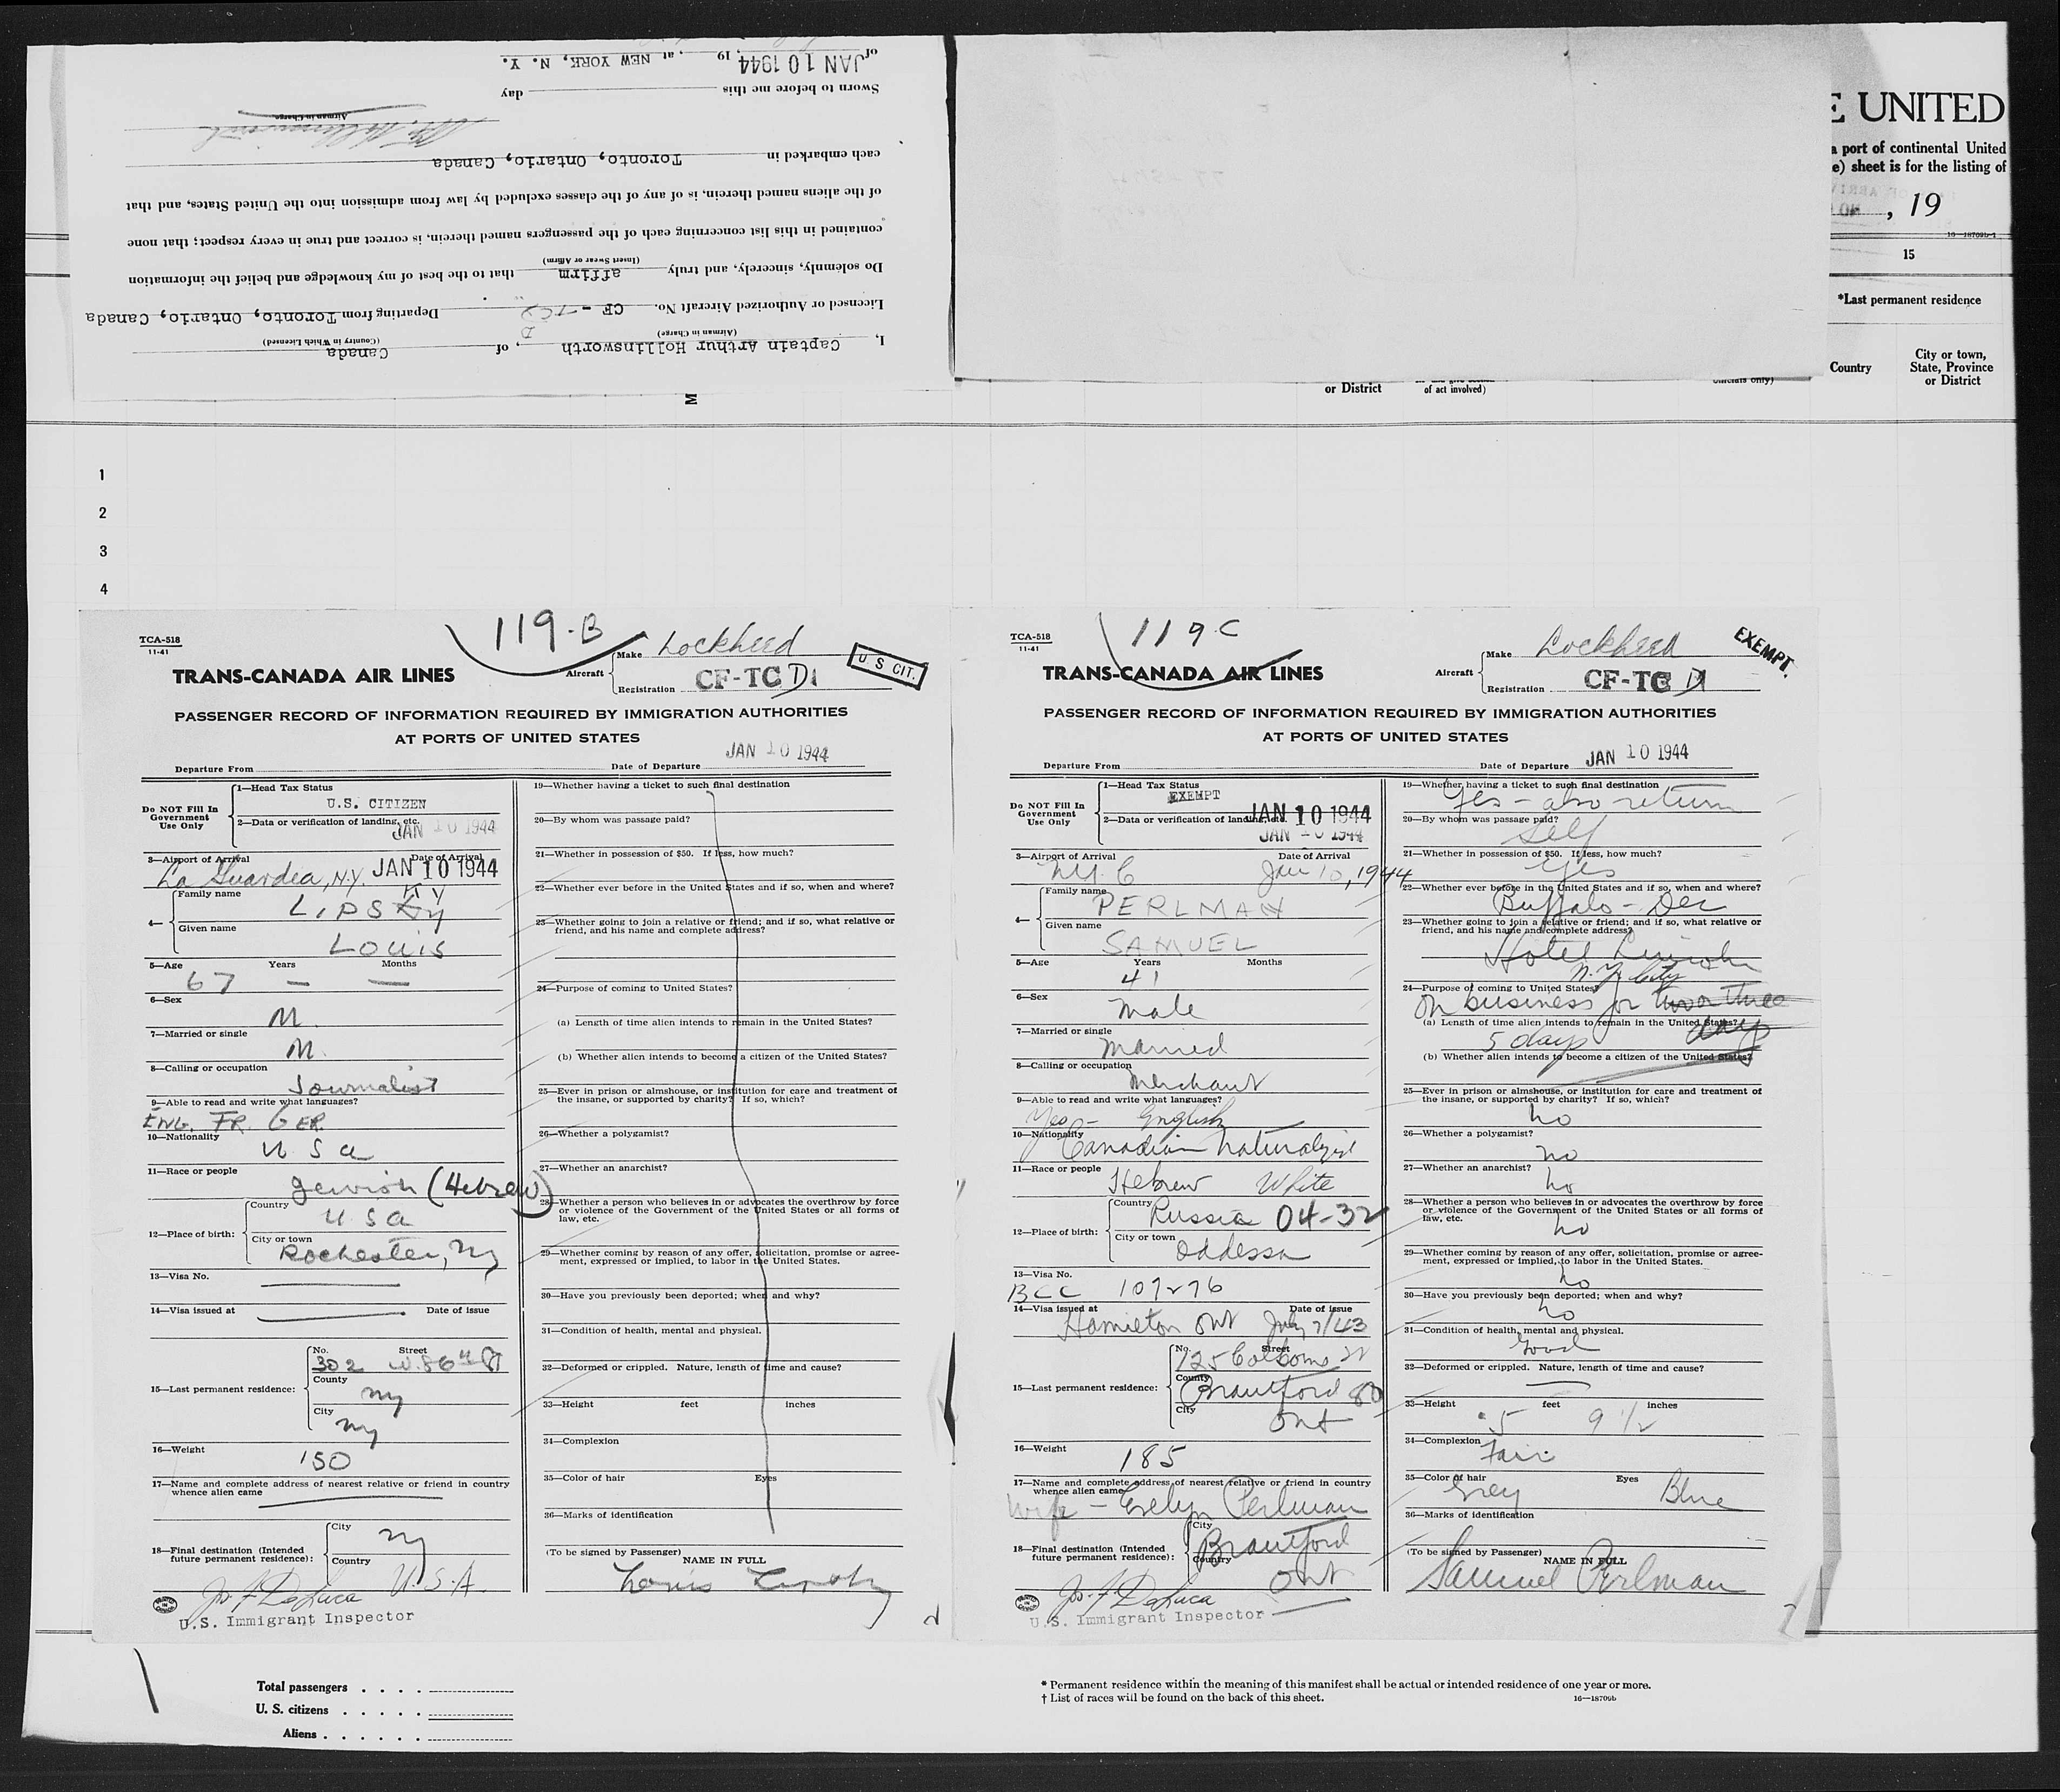 JAN 10 1944, 19 , at NEW YORK, N. Y.
Sworn to before me this day
of
Airman in Charge
each embarked in Toronto, Ontario, Canada
of the aliens named therein, is of any of the classes excluded by law from admission into the United States, and that
contained in this list concerning each of the passengers named therein, is correct and true in every respect; that none
(Insert Swear or Affirm)
Do solemnly, sincerely, and truly affirm that to the best of my knowledge and belief the information
Licensed or Authorized Aircraft No. CF - TCD Departing from Toronto, Ontario, Canada
(Airman in Charge) (Country in Which Licensed)
I, Captain Arthur Hollinsworth, of Canada
E UNITED
a port of continental United
e) sheet is for the listing of
, 19
16-18709b-1
15
*Last permanent residence
Country
City or town,
State, Province
or District
or District
of act involved)
officials only)
M
1
2
3
4
119-B
TCA-518
11-41
Make Lockheed
U S CIT.
TRANS-CANADA AIR LINES
Aircraft
Registration CF-TC D
PASSENGER RECORD OF INFORMATION REQUIRED BY IMMIGRATION AUTHORITIES
AT PORTS OF UNITED STATES
Departure From Date of Departure JAN 10 1944
Do NOT Fill In Government Use Only
1—Head Tax Status
U.S. CITIZEN
2—Data or verification of landing, etc.
JAN 10 1944
3—Airport of Arrival Date of Arrival
La Guardia, N.Y. JAN 10 1944
4— Family name
LIPSKY KY
Given name
LOUIS
5—Age Years Months
67 — —
6—Sex
M.
7—Married or single
M.
8—Calling or occupation
Journalist
9—Able to read and write what languages?
ENG. FR. GER.
10—Nationality
U S A
11—Race or people
Jewish (Hebrew)
12—Place of birth:
Country
U S A
City or town
Rochester, NY
13—Visa No.
14—Visa issued at Date of issue
15—Last permanent residence:
No. Street
302 W. 86th St
County
NY
City
NY
16—Weight
150
17—Name and complete address of nearest relative or friend in country
whence alien came
18—Final destination (Intended
future permanent residence):
City
NY
Country
U.S.A.
Jos. F. DeLuca
U.S. Immigrant Inspector
19—Whether having a ticket to such final destination
20—By whom was passage paid?
21—Whether in possession of $50. If less, how much?
22—Whether ever before in the United States and if so, when and where?
23—Whether going to join a relative or friend; and if so, what relative or
friend, and his name and complete address?
24—Purpose of coming to United States?
(a) Length of time alien intends to remain in the United States?
(b) Whether alien intends to become a citizen of the United States?
25—Ever in prison or almshouse, or institution for care and treatment of
the insane, or supported by charity? If so, which?
26—Whether a polygamist?
27—Whether an anarchist?
28—Whether a person who believes in or advocates the overthrow by force
or violence of the Government of the United States or all forms of
law, etc.
29—Whether coming by reason of any offer, solicitation, promise or agree-
ment, expressed or implied, to labor in the United States.
30—Have you previously been deported; when and why?
31—Condition of health, mental and physical.
32—Deformed or crippled. Nature, length of time and cause?
33—Height feet inches
34—Complexion
35—Color of hair Eyes
36—Marks of identification
(To be signed by Passenger)
NAME IN FULL
Louis Lipsky
119 C
TCA-518
11-41
Make Lockheed
EXEMPT.
TRANS-CANADA AIR LINES
Aircraft
Registration CF-TC D
PASSENGER RECORD OF INFORMATION REQUIRED BY IMMIGRATION AUTHORITIES
AT PORTS OF UNITED STATES
Departure From Date of Departure JAN 10 1944
Do NOT Fill In Government Use Only
1—Head Tax Status
EXEMPT
2—Data or verification of landing, etc. JAN 10 1944
JAN 10 1944
3—Airport of Arrival Date of Arrival
N.Y.C Jan 10, 1944
4— Family name
PERLMAN
Given name
SAMUEL
5—Age Years Months
41
6—Sex
Male
7—Married or single
Married
8—Calling or occupation
Merchant
9—Able to read and write what languages?
Yes - English
10—Nationality
Canadian naturalized
11—Race or people
Hebrew White
12—Place of birth:
Country
Russia 04-32
City or town
Oddessa
13—Visa No.
BCC 107276
14—Visa issued at Date of issue
Hamilton Ont July 7/43
15—Last permanent residence:
No. Street
125
County
Brantford
City
Ont
16—Weight
185
17—Name and complete address of nearest relative or friend in country
whence alien came
Wife - Evelyn Perlman
18—Final destination (Intended
future permanent residence):
City
Brantford
Country
Ont
Jos. F. DeLuca
U.S. Immigrant Inspector
19—Whether having a ticket to such final destination
Yes - also return
20—By whom was passage paid?
Self
21—Whether in possession of $50. If less, how much?
Yes
22—Whether ever before in the United States and if so, when and where?
Buffalo - Dec
23—Whether going to join a relative or friend; and if so, what relative or
friend, and his name and complete address?
Hotel Lincoln
N.Y. City
24—Purpose of coming to United States?
On business for two or three days
(a) Length of time alien intends to remain in the United States?
5 days
(b) Whether alien intends to become a citizen of the United States?
25—Ever in prison or almshouse, or institution for care and treatment of
the insane, or supported by charity? If so, which?
no
26—Whether a polygamist?
no
27—Whether an anarchist?
no
28—Whether a person who believes in or advocates the overthrow by force
or violence of the Government of the United States or all forms of
law, etc.
no
29—Whether coming by reason of any offer, solicitation, promise or agree-
ment, expressed or implied, to labor in the United States.
no
30—Have you previously been deported; when and why?
no
31—Condition of health, mental and physical.
Good
32—Deformed or crippled. Nature, length of time and cause?
33—Height feet inches
5 9 1/2
34—Complexion
Fair
35—Color of hair Eyes
Grey Blue
36—Marks of identification
(To be signed by Passenger)
NAME IN FULL
Samuel Perlman
Total passengers . . . .
U. S. citizens . . . . .
Aliens . . . . . .
* Permanent residence within the meaning of this manifest shall be actual or intended residence of one year or more.
† List of races will be found on the back of this sheet.
16—18709b